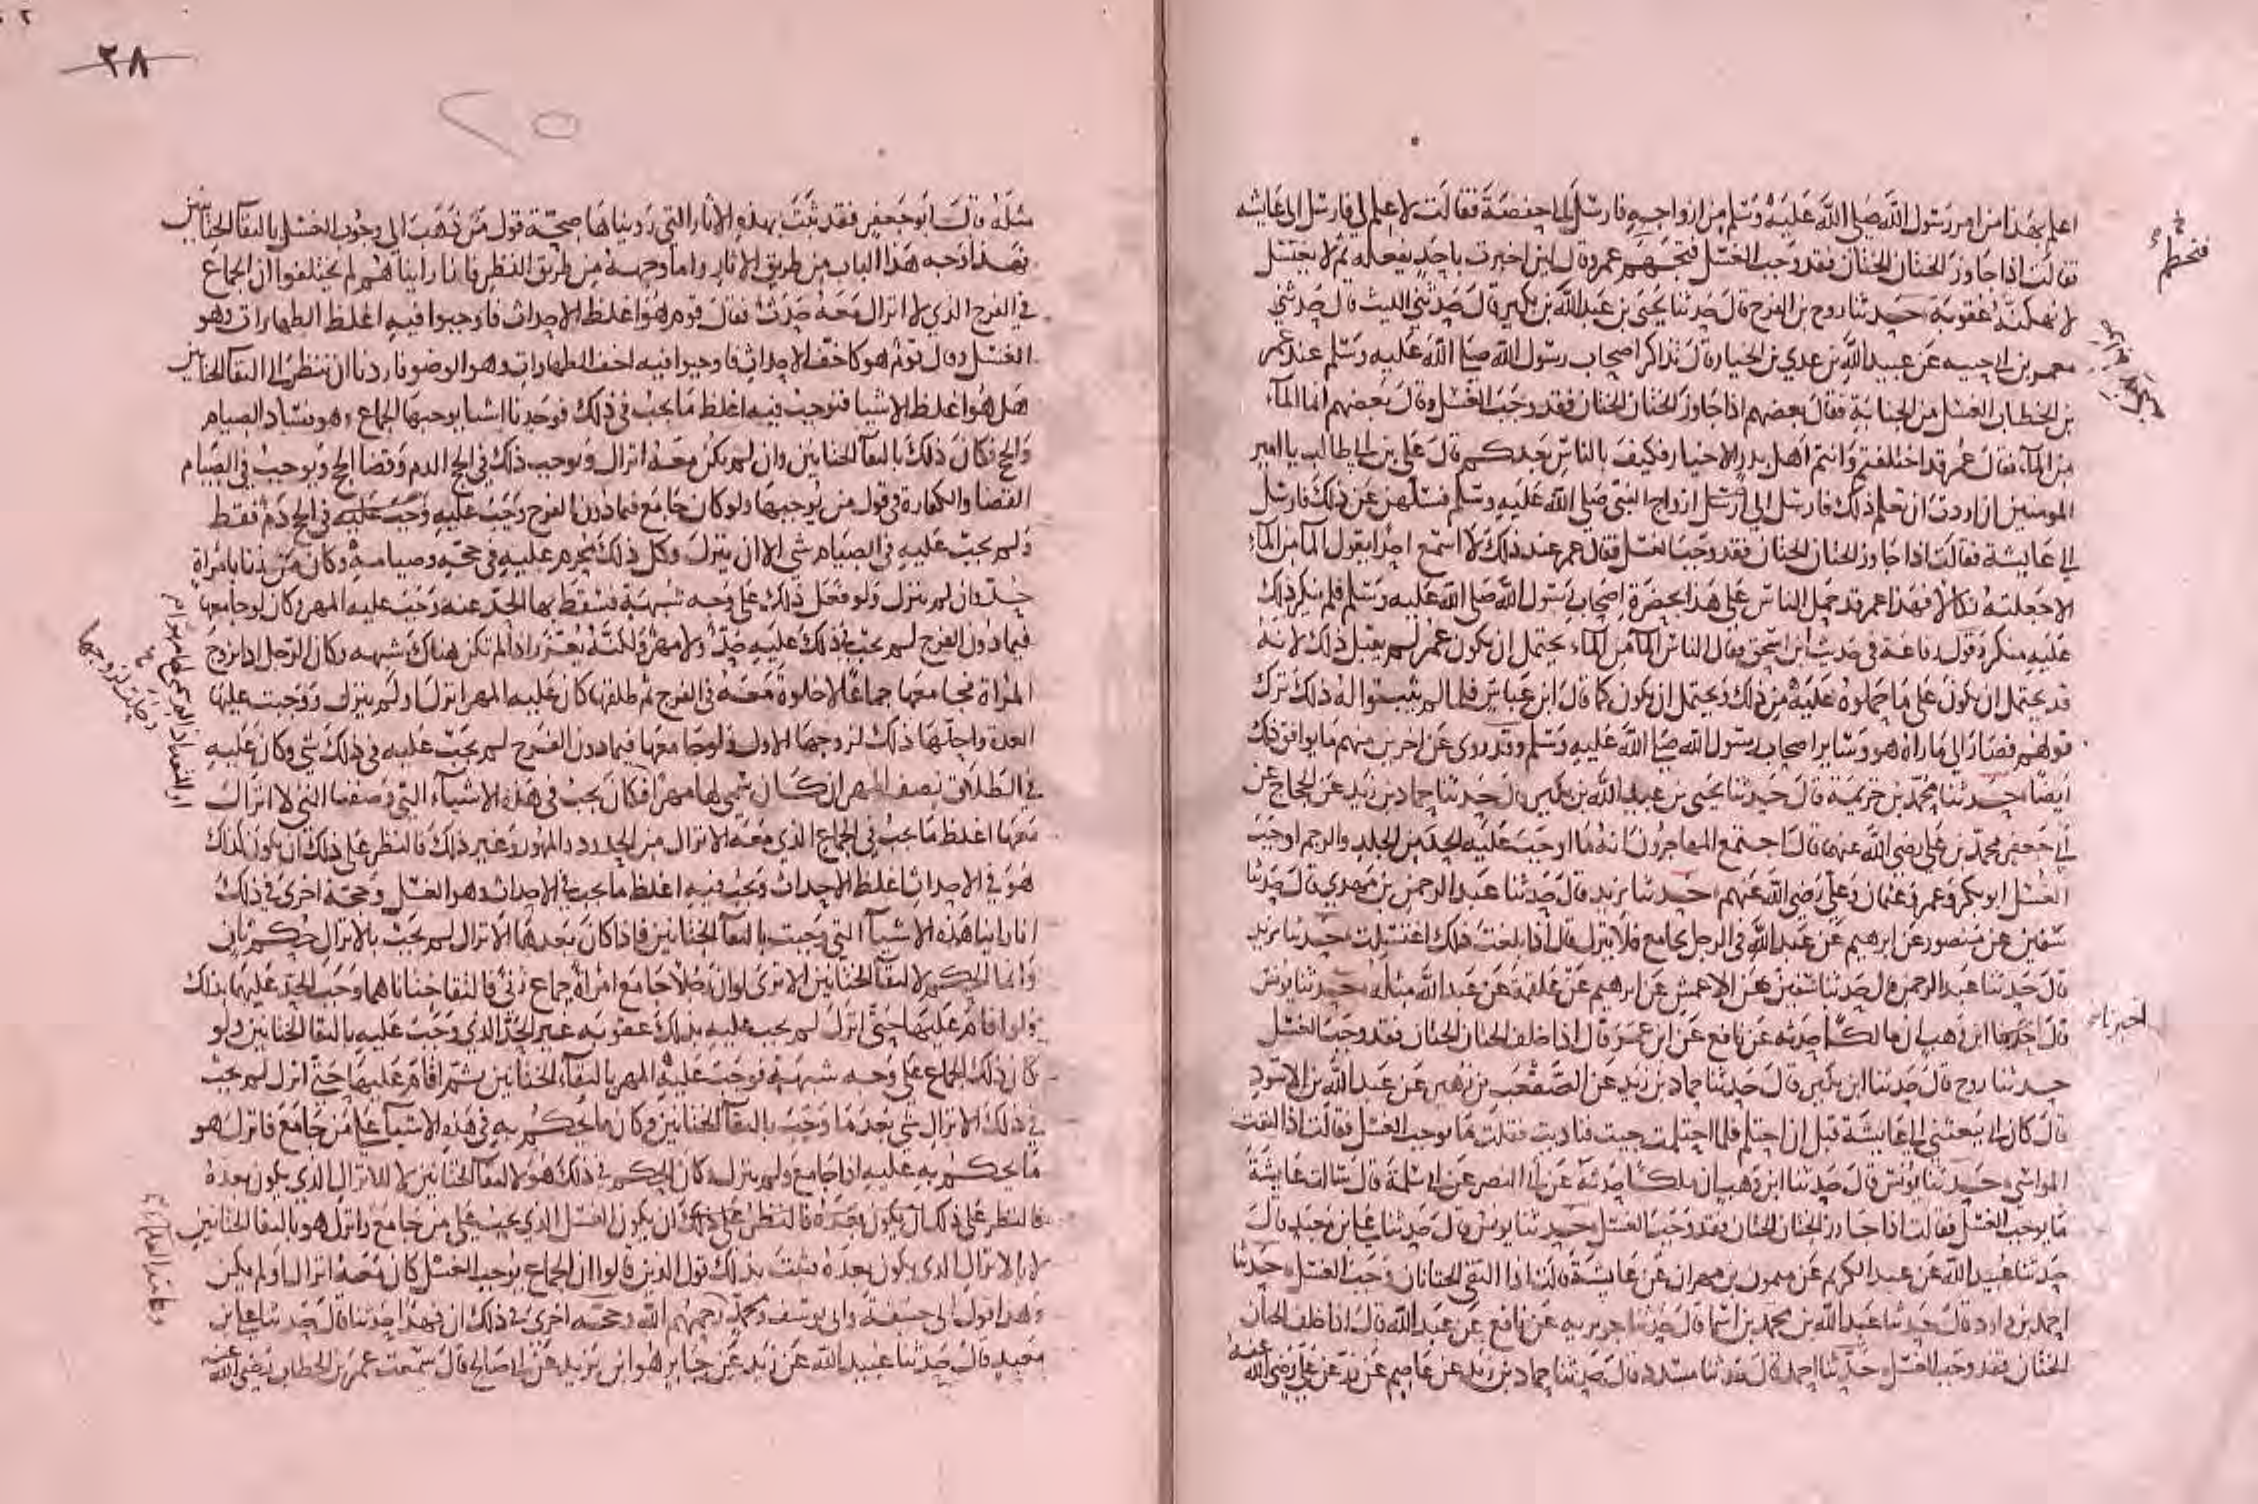 اعلم بهذا من امر رسول الله صلى الله عليه وسلم من ازواجه فارسل الى حفصة فقالت لا علم لي فارسل الى عائشه
فقالت اذا جاوز الختان الختان فقد وجب الغسل فتحطم عمر وقال لئن اخبرت باحد يفعله ثم لا يغتسل
لانهكته عقوبة حدثنا روح بن الفرج قال حدثنا يحيى بن عبد الله بن بكير قال حدثني الليث قال حدثني
معمر بن ابي حبيبه عن عبيد الله بن عدي بن الخيار قال تذاكر اصحاب رسول الله صلى الله عليه وسلم عند عمر
بن الخطاب الغسل من الجنابة فقال بعضهم اذا جاوز الختان الختان فقد وجب الغسل وقال بعضهم انما الماء
من الماء فقال عمر قد اختلفتم وانتم اهل بدر الاخيار فكيف بالناس بعدكم قال علي بن ابي طالب يا امير
المومنين ان اردت ان تعلم ذلك فارسل الى ازواج النبي صلى الله عليه وسلم فسلهن عن ذلك فارسل
الى عايشة فقالت اذا جاوز الختان الختان فقد وجب الغسل فقال عمر عند ذلك لا اسمع احدا يقول الما من الماء
الا جعلته نكالا فهذا عمر قد حمل الناس على هذا بحضرة اصحاب رسول الله صلى الله عليه وسلم فلم ينكر ذلك
عليه منكر وقول رفاعة في حديث ابن اسحق فقال الناس الما من الماء يحتمل ان يكون عمر لم يقبل ذلك لانه
قد يحتمل ان يكون على ما حملوه عليه من ذلك ويحتمل ان يكون كما قال ابن عباس فلما لم يثبتوا له ذلك ترك
قولهم فصار الى ما راه هو وساير اصحاب رسول الله صلى الله عليه وسلم وقد روى عن اخرين منهم ما يوافق ذلك
ايضا حدثنا محمد بن خزيمة قال حدثنا يحيى بن عبد الله بن بكير قال حدثنا حماد بن زيد عن الحجاج عن
ابي جعفر محمد بن علي رضي الله عنهما قال اجتمع المهاجرون انه ما اوجب عليه الحد من الجلد والرجم اوجب
الغسل ابو بكر وعمر وعثمان وعلي رضي الله عنهم حدثنا يزيد قال حدثنا عبد الرحمن بن مهدي قال حدثنا
سفين عن منصور عن ابرهيم عن عبد الله في الرجل يجامع فلا ينزل قال اذا بلغت ذلك اغتسلت حدثنا يزيد
قال حدثنا عبد الرحمن قال حدثنا سفين عن الاعمش عن ابرهيم عن علقمة عن عبد الله مثله حدثنا يونس
قال اخبرنا ابن وهب ان مالكا حدثه عن نافع عن ابن عمر قال اذا خلف الختان الختان فقد وجب الغسل
حدثنا روح قال حدثنا ابن بكير قال حدثنا حماد بن زيد عن الصقعب بن زهير عن عبد الله بن الاسود
قال كان ابي يبعثني الى عايشة قبل ان احتلم فلما احتلمت جيت فناديت فقلت ما يوجب الغسل فقالت اذا التقت
المواسي حدثنا يونس قال حدثنا ابن وهب ان ملكا حدثه عن ابي النضر عن ابي سلمة قال سالت عايشة
ما يوجب الغسل فقالت اذا جاوز الختان الختان فقد وجب الغسل حدثنا يونس قال حدثنا علي بن معبد قال
حدثنا عبيد الله عن عبد الكريم عن ميمون بن مهران عن عايشة قالت اذا التقى الختانان وجب الغسل حدثنا
احمد بن داود قال حدثنا عبد الله بن محمد بن اسما قال حدثنا جويريه عن نافع عن عبد الله قال اذا خلف الختان
الختان فقد وجب الغسل حدثنا احمد قال حدثنا مسدد قال حدثنا حماد بن زيد عن عاصم عن زر عن علي رضي الله عنه
فتحطم
اخبرنا
٢٨
٢٥
مثله قال ابو جعفر فقد ثبت بهذه الاثار التي رويناها صحة قول من ذهب الى وجوب الغسل بالتقا الختانين
فهذا وجه هذا الباب من طريق الاثار واما وجهه من طريق النظر فانا راينا هم لم يختلفوا ان الجماع
في الفرج الذي لا انزال معه حدث فقال قوم هو اغلظ الاحداث فاوجبوا فيه اغلظ الطهارات وهو
الغسل وقال قوم هو كاخف الاحداث فاوجبوا فيه اخف الطهارات وهو الوضو فاردنا ان ننظر الى التقا الختانين
هل هو اغلظ الاشيا فنوجب فيه اغلظ ما يجب في ذلك فوجدنا اشيا يوجبها الجماع وهو فساد الصيام
والحج فكان ذلك بالتقا الختانين وان لم يكن معه انزال ويوجب ذلك في الحج الدم وقضا الحج ويوجب في الصيام
القضا والكفارة في قول من يوجبها ولو كان جامع فيما دون الفرج وجب عليه في الحج دم فقط
ولم يجب عليه في الصيام شي الا ان ينزل وكل ذلك محرم عليه في حجه وصيامه وكان من زنا بامراة
حد وان لم ينزل ولو فعل ذلك على وجه شبهة فسقط بها الحد عنه وجب عليه المهر وكان لو جامعها
فيما دون الفرج لم يجب في ذلك عليه حد ولا مهر ولكنه يعزر اذا لم تكن هناك شبهه وكان الرجل اذا تزوج
المراة فجامعها جماعا لا خلوة معه في الفرج ثم طلقها كان عليه المهر انزل او لم ينزل ووجبت عليها
العدة واحلها ذلك لزوجها الاول ولو جامعها فيما دون الفرج لم يجب عليه في ذلك شي وكان عليه
في الطلاق نصف المهر ان كان سمى لها مهرا فكان يجب في هذه الاشياء التي وصفنا التي لا انزال
معها اغلظ ما يجب في الجماع الذي معه الانزال من الحدود والمهور وغير ذلك فالنظر على ذلك ان يكون كذلك
هو في الاحداث اغلظ الاحداث ويجب فيه اغلظ ما يجب في الاحداث وهو الغسل وحجة اخرى في ذلك
انا راينا هذه الاشيآ التي وجبت بالتقآ الختانين فاذا كان بعدها الانزال لم يجب بالانزال حكم ثان
وانما الحكم لالتقآ الختانين الا ترى لو ان رجلا جامع امراة جماع زنى فالتقا ختاناهما وجب الحد عليهما بذلك
ولو اقام عليها حتى انزل لم يجب عليه بذلك عقوبه غير الحد الذي وجب عليه بالتقا الختانين ولو
كان ذلك الجماع على وجه شبهة فوجب عليه المهر بالتقآء الختانين ثم اقام عليها حتى انزل لم يجب
في ذلك الانزال شي بعد ما وجب بالتقآ الختانين وكان ما يحكم به في هذه الاشيآ على من جامع فانزل هو
ما يحكم به عليه اذا جامع ولم ينزل وكان الحكم في ذلك هو لالتقآ الختانين لا للانزال الذي يكون بعده
فالنظر على ذلك ان يكون الغسل الذي يجب على من جامع وانزل هو بالتقا الختانين
لا بالانزال الذي يكون بعده فثبت بذلك قول الذين قالوا ان الجماع يوجب الغسل كان معه انزال او لم يكن
وهذا قول ابي حنيفة وابي يوسف ومحمد رحمهم الله وحجه اخرى في ذلك ان فهدا حدثنا قال حدثنا علي بن
معبد قال حدثنا عبيد الله عن زيد عن جابر هو ابن يزيد عن ابي صالح قال سمعت عمر بن الخطاب رضي الله عنه